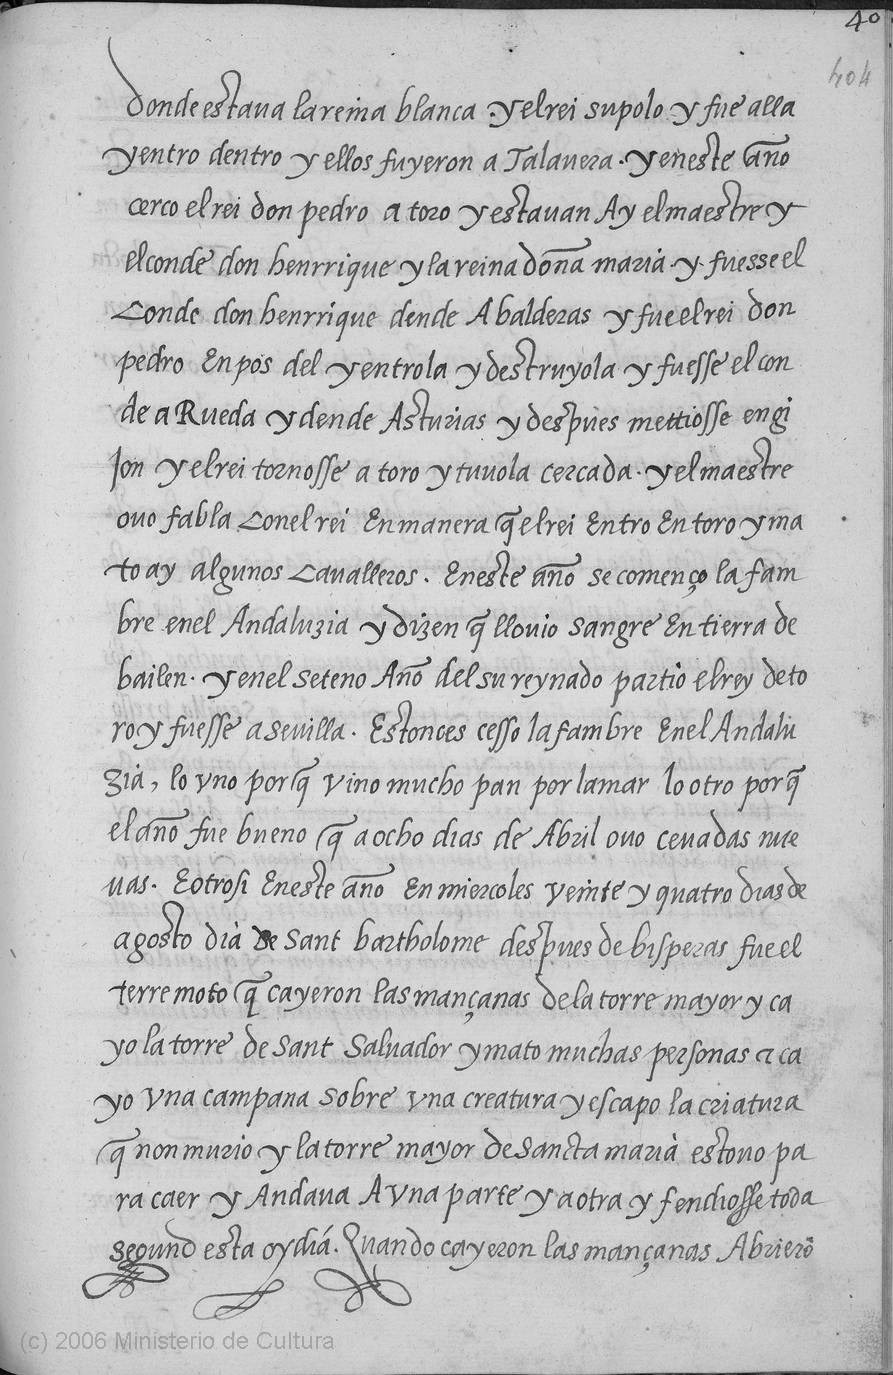 40
404
donde estaua la reina blanca · y el rei supolo y fue alla
y entro dentro y ellos fuyeron a Talauera · y en este año
cerco el rei don pedro a toro y estauan Ay el maestre y
el conde don henrrique y la reina doña maria · y fuesse el
Conde don henrrique dende A balderas y fue el rei don
pedro En pos del y entrola y destruyola y fuesse el con
de a Rueda y dende Asturias y despues mettiosse en gi
jon y el rei tornosse a toro y tuuola cercada · y el maestre
ouo fabla Con el rei En manera q̃ el rei Entro En toro y ma
to ay algunos Caualleros . En este año se començo la fam
bre en el Andaluzia y dizen q̃ llouio sangre En tierra de
bailen · y en el seteno Año del su reynado partio el rey de to
ro y fuesse a seuilla . Estonces cesso la fambre En el Andalu
zia , lo vno porq̃ vino mucho pan por la mar lo otro porq̃
el año fue bueno q̃ a ocho dias de Abril ouo ceuadas nue
uas . E otrosi En este año En miercoles veinte y quatro dias de
agosto dia de sant bartholome despues de bisperas fue el
terremoto q̃ cayeron las mançanas de la torre mayor y ca
yo la torre de sant saluador y mato muchas personas a ca
yo vna campana sobre vna creatura y escapo la criatura
q̃ non murio y la torre mayor de sancta maria estouo pa
ra caer y Andaua A vna parte y a otra y fendiosse toda
segund esta oy dia . Quando cayeron las mançanas Abrierõ
(c) 2006 Ministerio de Cultura